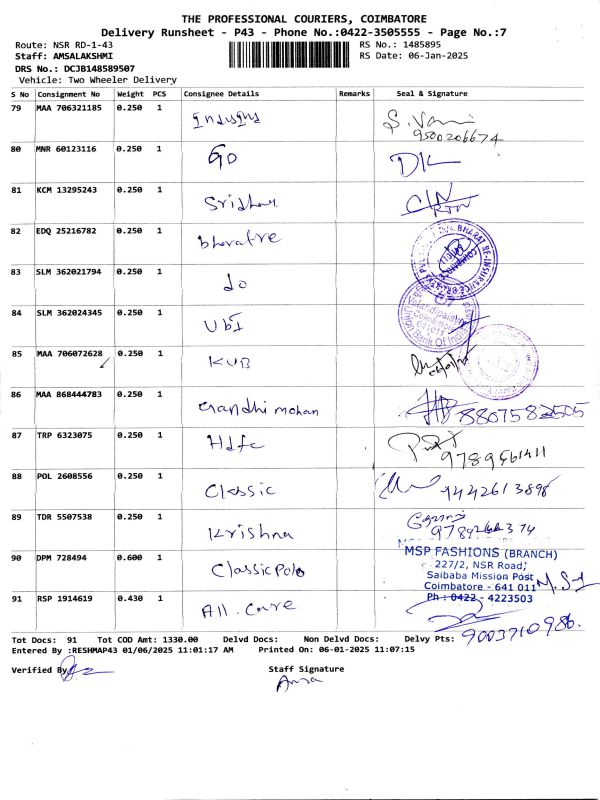 THE PROFESSIONAL COURIERS, COIMBATORE
Delivery Runsheet - P43 - Phone No.:0422-3505555 - Page No.:7
Route: NSR RD-1-43 RS No.: 1485895
Staff: AMSALAKSHMI RS Date: 06-Jan-2025
DRS No.: DCJB148589507
Vehicle: Two Wheeler Delivery
S No Consignment No Weight PCS Consignee Details Remarks Seal & Signature
79 MAA 706321185 0.250 1 S. Vani
9500206674
80 MNR 60123116 0.250 1 Go
81 KCM 13295243 0.250 1 Sridhar
82 EDQ 25216782 0.250 1 bharatre
83 SLM 362021794 0.250 1 do
84 SLM 362024345 0.250 1 UbI
85 MAA 706072628 0.250 1 KVB
86 MAA 868444783 0.250 1 Gandhi mohan 8807582505
87 TRP 6323075 0.250 1 Hdfc
9789561411
88 POL 2608556 0.250 1 Classic 9442613898
89 TDR 5507538 0.250 1 Krishna
90 DPM 728494 0.600 1 Classic Polo
MSP FASHIONS (BRANCH)
227/2, NSR Road,
Saibaba Mission Post
Coimbatore - 641 011
Ph : 0422 - 4223503
91 RSP 1914619 0.430 1 All. Care
9003710986.
Tot Docs: 91 Tot COD Amt: 1330.00 Delvd Docs: Non Delvd Docs: Delvy Pts:
Entered By :RESHMAP43 01/06/2025 11:01:17 AM Printed On: 06-01-2025 11:07:15
Verified By Staff Signature
Amsa